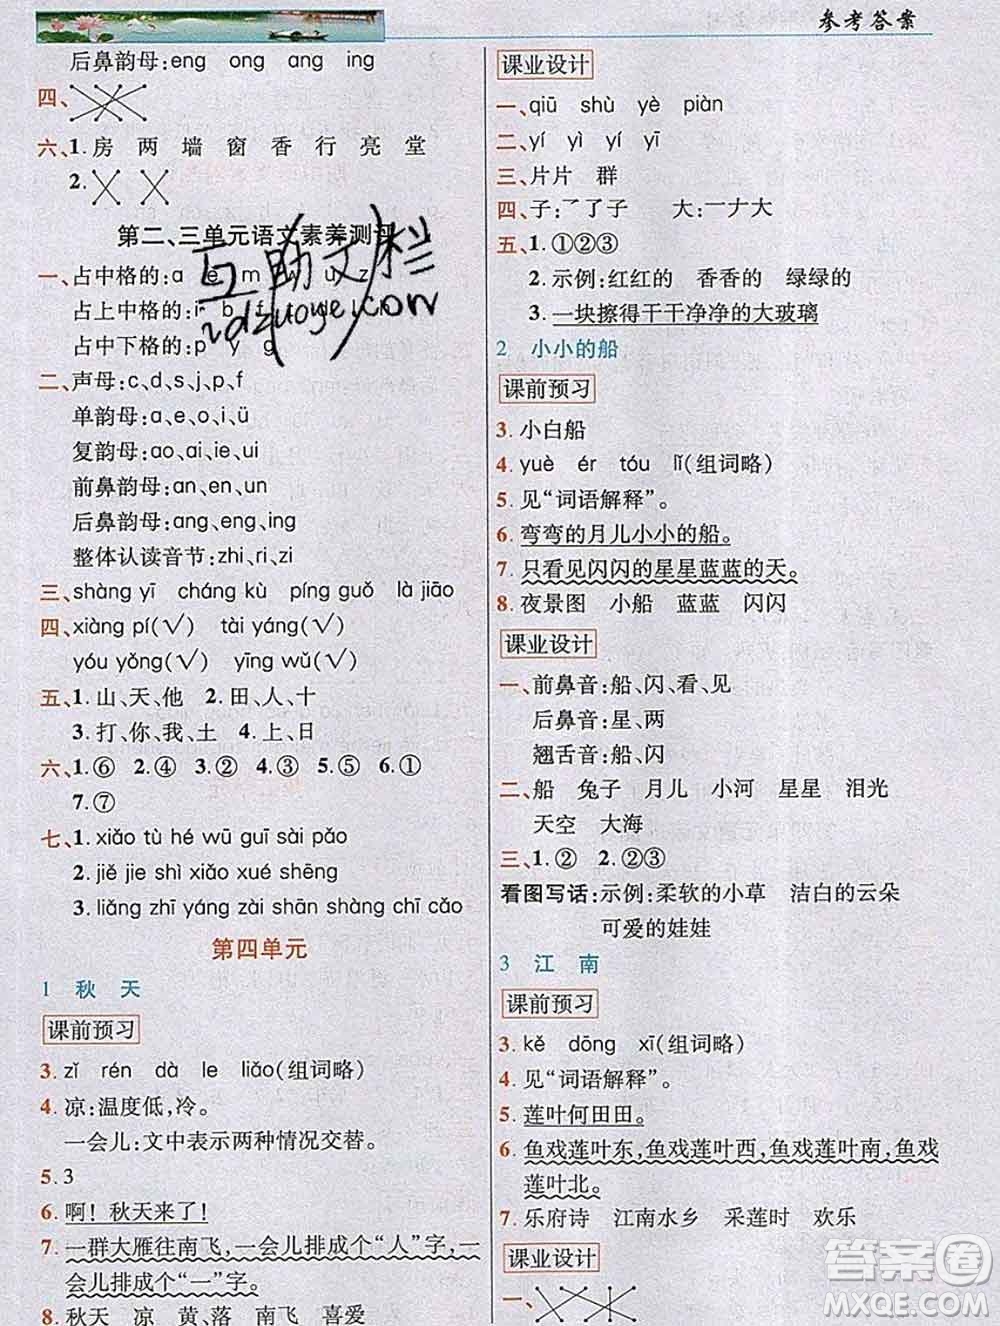 参考答案
后鼻韵母:eng ong ang ing
四、
六、1.房 两 墙 窗 香 行 亮 堂
2.
第二、三单元语文素养测
一、占中格的:a e m u z
占上中格的:i b f
占中下格的:p y g
二、声母:c、d、s、j、p、f
单韵母:a、e、o、i、ü
复韵母:ao、ai、ie、ui
前鼻韵母:an、en、un
后鼻韵母:ang、eng、ing
整体认读音节:zhi、ri、zi
三、shàng yī cháng kù píng guǒ là jiāo
四、xiàng pí(√) tài yáng(√)
yóu yǒng(√) yīng wǔ(√)
五、1.山、天、他 2.田、人、十
3.打、你、我、土 4.上、日
六、1.⑥ 2.④ 3.② 4.① 5.③ 6.⑤
7.⑦
七、1.xiǎo tù hé wū guī sài pǎo
2.jiě jie shì xiǎo xué shēng
3.liǎng zhī yáng zài shān shàng chī cǎo
第四单元
1 秋 天
课前预习
3.zǐ rén dà le liǎo(组词略)
4.凉:温度低,冷。
一会儿:文中表示两种情况交替。
5.3
6.啊！秋天来了！
7.一群大雁往南飞,一会儿排成个“人”字,一
会儿排成个“一”字。
8.秋天 凉 黄、落 南飞 喜爱
课业设计
一、qiū shù yè piàn
二、yí yì yí yī
三、片片 群
四、子:㇇了子 大:一ナ大
五、1.①②③
2.示例:红红的 香香的 绿绿的
3.一块擦得干干净净的大玻璃
2 小小的船
课前预习
3.小白船
4.yuè ér tóu lǐ(组词略)
5.见“词语解释”。
6.弯弯的月儿小小的船。
7.只看见闪闪的星星蓝蓝的天。
8.夜景图 小船 蓝蓝 闪闪
课业设计
一、前鼻音:船、闪、看、见
后鼻音:星、两
翘舌音:船、闪
二、船 兔子 月儿 小河 星星 泪光
天空 大海
三、1.② 2.②③
看图写话:示例:柔软的小草 洁白的云朵
可爱的娃娃
3 江 南
课前预习
3.kě dōng xī(组词略)
4.见“词语解释”。
5.莲叶何田田。
6.鱼戏莲叶东,鱼戏莲叶西,鱼戏莲叶南,鱼戏
莲叶北。
7.乐府诗 江南水乡 采莲时 欢乐
课业设计
一、
互助文栏
答案圈
MXQE.COM